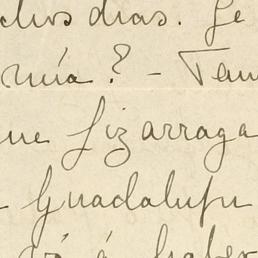 dias. Je
mía? - Tam
ne Lizarraga
Guadalupe
á haber